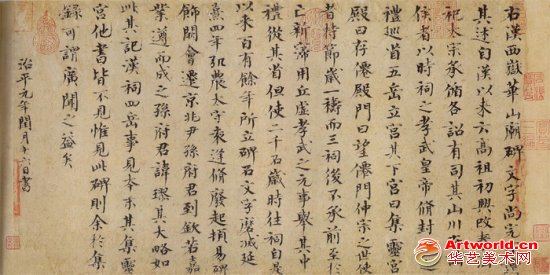 右漢西嶽華山廟碑文字尚完可讀
其述自漢以來云高祖初興改秦淫
祀太宗承循各詔有司其山川在諸
侯者以時祠之孝武皇帝修封禪之
禮巡省五岳立宮其下宮曰集靈宮
殿曰存僊殿門曰望僊門仲宗之世使
者持節歲一禱而三祠後不承前至於
亡新寖用丘虛孝武之元事舉其中
禮從其省但使二千石歲時往祠自是
以來百有餘年所立碑石文字磨滅延
熹四年弘農太守袁逢修廢起頓易碑
飾闕會遷京兆尹孫府君到欽若嘉
業遵而成之孫府君諱璆其大略如
此其記漢祠四岳事見本末其集靈
宮他書皆不見惟見此碑則余於集
錄可謂廣聞之益矣
治平元年閏月十六日書
Artworld.cn
华艺美术网